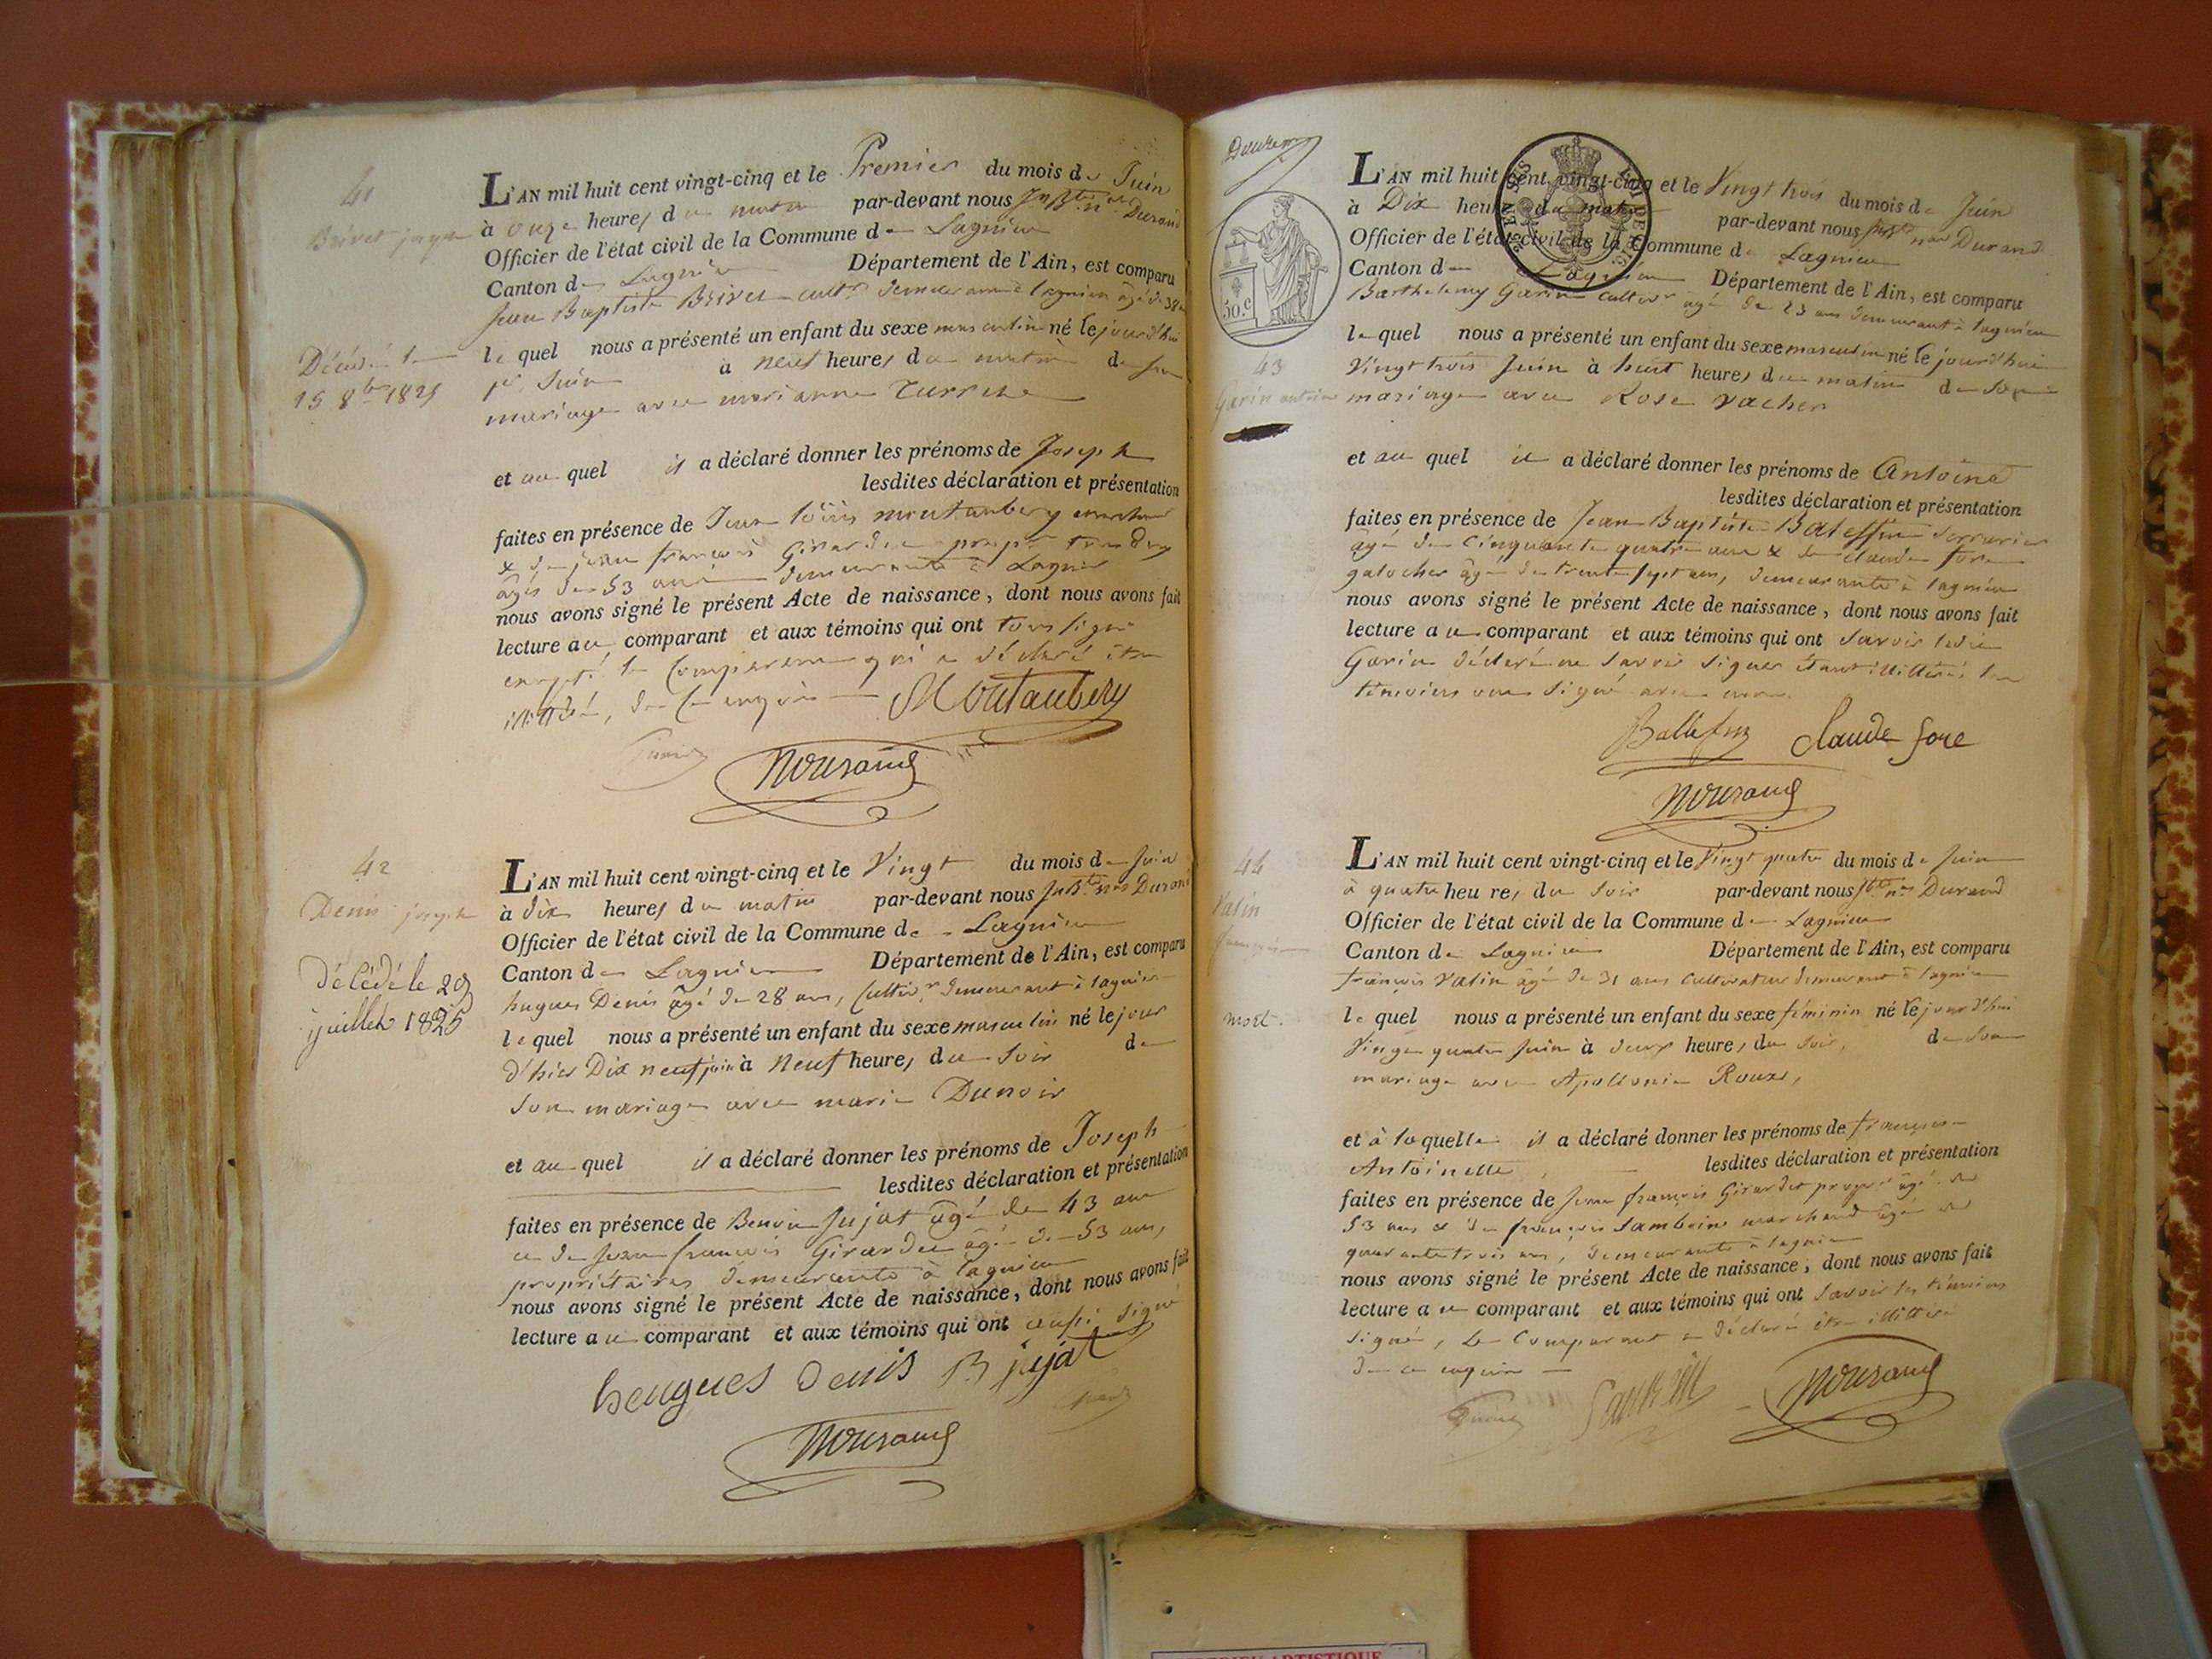 41
Brivet joseph
L'AN mil huit cent vingt-cinq et le Premier du mois de Juin
à onze heures du matin par-devant nous Durand
Officier de l'état civil de la Commune de Lagnieu
Canton de Lagnieu Département de l'Ain, est comparu
Jean Baptiste Brivet cultr demeurant à lagnieu âgé de 38
le quel nous a présenté un enfant du sexe masculin né le jourd'hui
1er Juin à neuf heures du matin de son
mariage avec marianne
Décédé le
15 8bre 1825
et au quel il a déclaré donner les prénoms de Joseph
lesdites déclaration et présentation
faites en présence de Jean loüis montaubery
& de jean françois Girardet propre tous deux
âgés de 53 ans demeurants à Lagnieu
nous avons signé le présent Acte de naissance, dont nous avons fait
lecture au comparant et aux témoins qui ont tous signé
excepté le Comparant qui a déclaré être
illitéré, de ce enquis Montaubery
42
Denis joseph
Décédé le 29
juillet 1825
L'AN mil huit cent vingt-cinq et le Vingt du mois de Juin
à dix heures du matin par-devant nous Durand
Officier de l'état civil de la Commune de Lagnieu
Canton de Lagnieu Département de l'Ain, est comparu
hugues Denis âgé de 28 ans, Cultivr demeurant à lagnieu
le quel nous a présenté un enfant du sexe masculin né le jour
d'hier Dix neuf juin à Neuf heures du soir de
son mariage avec marie Dunoir
et au quel il a déclaré donner les prénoms de Joseph
lesdites déclaration et présentation
faites en présence de Benoit Jujat âgé de 43 ans
et de Jean françois Girardet âgé de 53 ans,
propriétaires demeurants à lagnieu
nous avons signé le présent Acte de naissance, dont nous avons fait
lecture au comparant et aux témoins qui ont aussi signé
heugues denis B jujat
50.c
L'AN mil huit cent vingt-cinq et le Vingt trois du mois de Juin
à Dix heures du matin par-devant nous Durand
Officier de l'état civil de la Commune de Lagnieu
Canton de Lagnieu Département de l'Ain, est comparu
Barthelemy Garin cultivr âgé de 23 ans demeurant à lagnieu
le quel nous a présenté un enfant du sexe masculin né le jourd'hui
Vingt trois Juin à huit heures du matin de son
mariage avec Rose Vacher
43
Garin antoine
et au quel il a déclaré donner les prénoms de Antoine
lesdites déclaration et présentation
faites en présence de Jean Baptiste Baleffin Serrurier
âgé de cinquante quatre ans & de claude fore
galocher âgé de trente sept ans, demeurants à lagnieu
nous avons signé le présent Acte de naissance, dont nous avons fait
lecture au comparant et aux témoins qui ont savoir ledit
Garin déclaré ne savoir signer étant illitéré les
témoins ont signé avec nous
Ballefin claude fore
44
Vatin
françoise
mort.
L'AN mil huit cent vingt-cinq et le Vingt quatre du mois de Juin
à quatre heures du soir par-devant nous Durand
Officier de l'état civil de la Commune de Lagnieu
Canton de Lagnieu Département de l'Ain, est comparu
françois Vatin âgé de 31 ans cultivateur demeurant à lagnieu
le quel nous a présenté un enfant du sexe féminin né le jourd'hui
Vingt quatre Juin à deux heures du soir, de son
mariage avec Apollonie Roux,
et à laquelle il a déclaré donner les prénoms de françoise
Antoinette lesdites déclaration et présentation
faites en présence de Jean françois Girardet propre âgé de
53 ans & de françois marchand âgé de
quarante trois ans, demeurants à lagnieu
nous avons signé le présent Acte de naissance, dont nous avons fait
lecture au comparant et aux témoins qui ont savoir les témoins
signé, le Comparant a déclaré être illitéré
de ce enquis